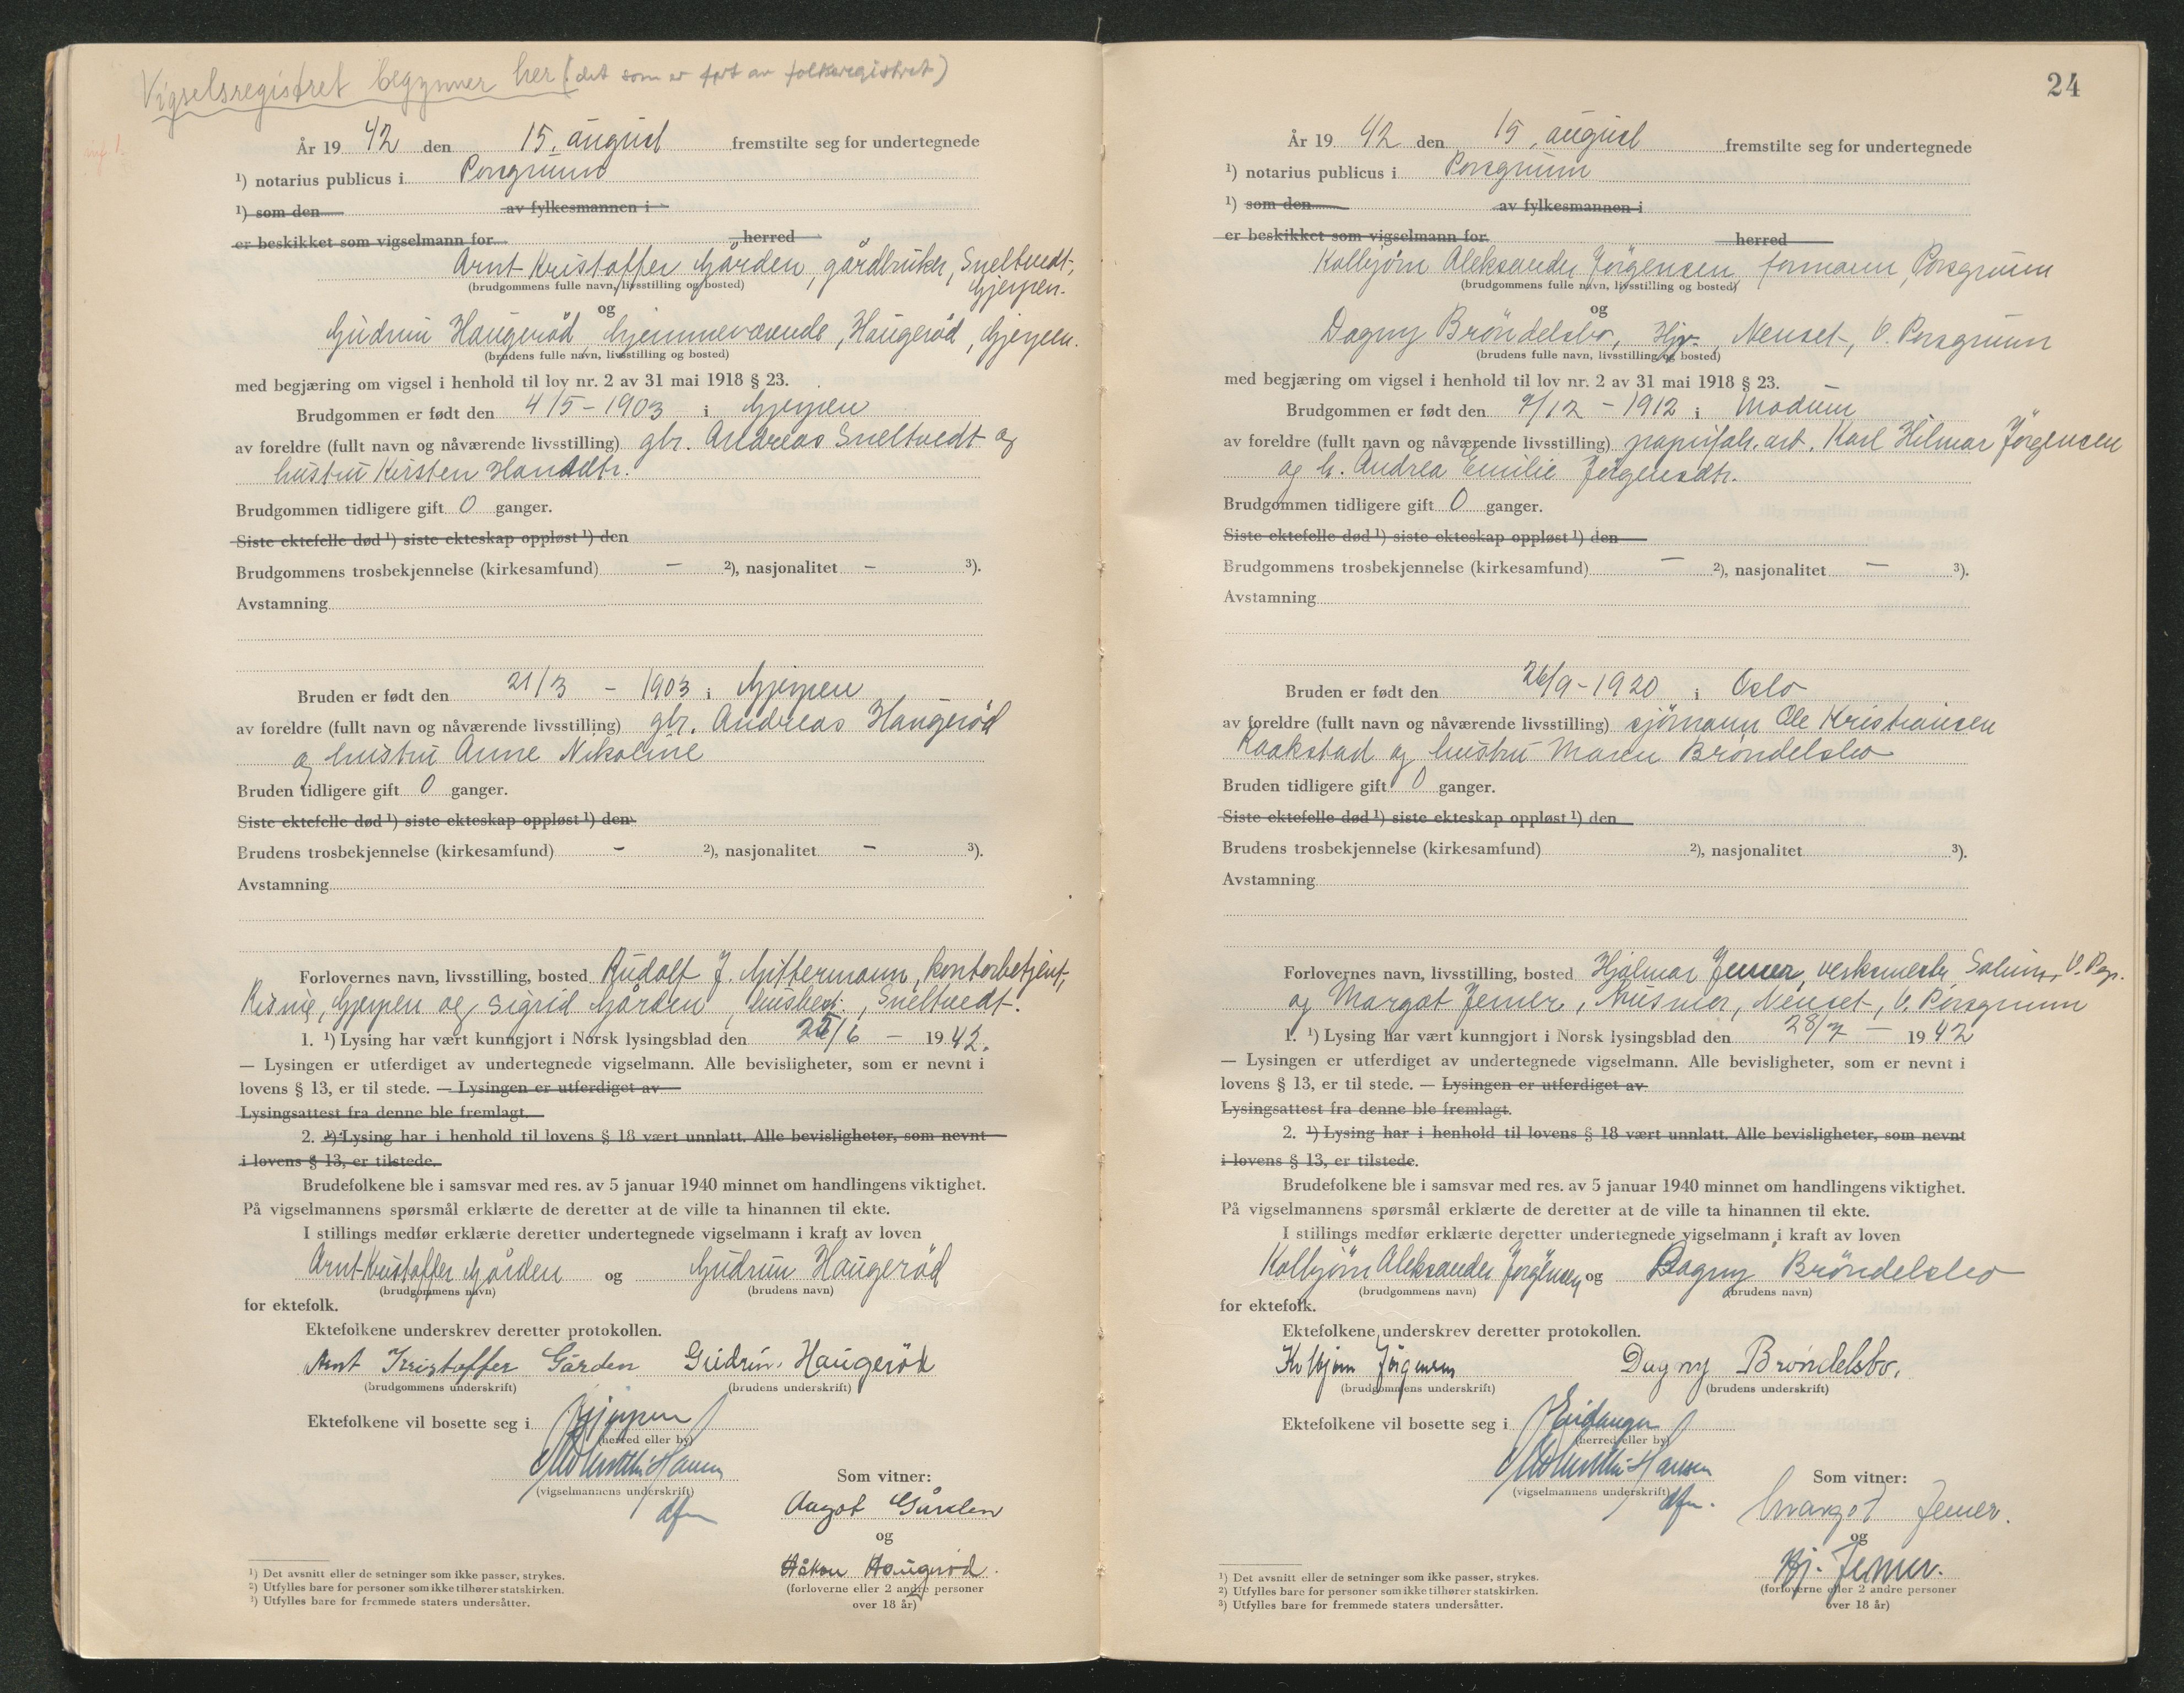 Vigselsregistret begynner her (det som er ført av folkeregistret)
År 19 42 den 15. august fremstilte seg for undertegnede
¹) notarius publicus i Porsgrunn
¹) som den av fylkesmannen i
er beskikket som vigselmann for herred
Arnt Kristoffer Gården, gårdbruker, Sneltvedt,
(brudgommens fulle navn, livsstilling og bosted)
Gjerpen.
og
Gudrun Haugerød hjemmeværende, Haugerød, Gjerpen.
(brudens fulle navn, livsstilling og bosted)
med begjæring om vigsel i henhold til lov nr. 2 av 31 mai 1918 § 23.
Brudgommen er født den 4/5 - 1903 i Gjerpen
av foreldre (fullt navn og nåværende livsstilling) gbr. Andreas Sneltvedt og
hustru Kirsten Hansdtr.
Brudgommen tidligere gift 0 ganger.
Siste ektefelle død ¹) siste ekteskap oppløst ¹) den
Brudgommens trosbekjennelse (kirkesamfund) — ²), nasjonalitet — ³).
Avstamning
Bruden er født den 21/3 - 1903 i Gjerpen
av foreldre (fullt navn og nåværende livsstilling) gbr. Andreas Haugerød
og hustru Anne Nikoline
Bruden tidligere gift 0 ganger.
Siste ektefelle død ¹) siste ekteskap oppløst ¹) den
Brudens trosbekjennelse (kirkesamfund) - ²), nasjonalitet — ³).
Avstamning
Forlovernes navn, livsstilling, bosted Rudolf J. Gittermann, kontorbetjent,
Gjerpen og Sigrid Gården, husbest., Sneltvedt.
1. ¹) Lysing har vært kunngjort i Norsk lysingsblad den /6 — 1942.
— Lysingen er utferdiget av undertegnede vigselmann. Alle bevisligheter, som er nevnt i
lovens § 13, er til stede. — Lysingen er utferdiget av
Lysingsattest fra denne ble fremlagt.
2. ¹) Lysing har i henhold til lovens § 18 vært unnlatt. Alle bevisligheter, som nevnt
i lovens § 13, er tilstede.
Brudefolkene ble i samsvar med res. av 5 januar 1940 minnet om handlingens viktighet.
På vigselmannens spørsmål erklærte de deretter at de ville ta hinannen til ekte.
I stillings medfør erklærte deretter undertegnede vigselmann i kraft av loven
Arnt Kristoffer Gården og Gudrun Haugerød
(brudgommens navn) (brudens navn)
for ektefolk.
Ektefolkene underskrev deretter protokollen.
Arnt Kristoffer Gården Gudrun Haugerød
(brudgommens underskrift) (brudens underskrift)
Ektefolkene vil bosette seg i Gjerpen
(herred eller by)
(vigselmannens underskrift)
dfm
Som vitner:
Aagot Gården
og
Håkon Haugerød.
(forloverne eller 2 andre personer
over 18 år)
¹) Det avsnitt eller de setninger som ikke passer, strykes.
²) Utfylles bare for personer som ikke tilhører statskirken.
³) Utfylles bare for fremmede staters undersåtter.
24
År 19 42 den 15. august fremstilte seg for undertegnede
¹) notarius publicus i Porsgrunn
¹) som den av fylkesmannen i
er beskikket som vigselmann for herred
Kolbjørn Aleksander Jørgensen formann, Porsgrunn
(brudgommens fulle navn, livsstilling og bosted)
og
Dagny Brøndelsbo, Hjv., Nenset, V. Porsgrunn
(brudens fulle navn, livsstilling og bosted)
med begjæring om vigsel i henhold til lov nr. 2 av 31 mai 1918 § 23.
Brudgommen er født den /12 - 1912 i Modum
av foreldre (fullt navn og nåværende livsstilling) papirfab. arb. Karl Hilmar Jørgensen
og h. Andrea Emilie Jørgensdtr.
Brudgommen tidligere gift 0 ganger.
Siste ektefelle død ¹) siste ekteskap oppløst ¹) den
Brudgommens trosbekjennelse (kirkesamfund) — ²), nasjonalitet — ³).
Avstamning
Bruden er født den 26/9 - 1920 i Oslo
av foreldre (fullt navn og nåværende livsstilling) sjømann Ole Kristiansen
Raakstad og hustru Maren Brøndelsbo
Bruden tidligere gift 0 ganger.
Siste ektefelle død ¹) siste ekteskap oppløst ¹) den
Brudens trosbekjennelse (kirkesamfund) ²), nasjonalitet ³).
Avstamning
Forlovernes navn, livsstilling, bosted Hjalmar Jemer, verksmester V. Pgr.
og Margot Jemer, husmor, Nenset, V. Porsgrunn
1. ¹) Lysing har vært kunngjort i Norsk lysingsblad den 28/7 — 1942
— Lysingen er utferdiget av undertegnede vigselmann. Alle bevisligheter, som er nevnt i
lovens § 13, er til stede. — Lysingen er utferdiget av
Lysingsattest fra denne ble fremlagt.
2. ¹) Lysing har i henhold til lovens § 18 vært unnlatt. Alle bevisligheter, som nevnt
i lovens § 13, er tilstede.
Brudefolkene ble i samsvar med res. av 5 januar 1940 minnet om handlingens viktighet.
På vigselmannens spørsmål erklærte de deretter at de ville ta hinannen til ekte.
I stillings medfør erklærte deretter undertegnede vigselmann i kraft av loven
Kolbjørn Aleksander Jørgensen og Dagny Brøndelsbo
(brudgommens navn) (brudens navn)
for ektefolk.
Ektefolkene underskrev deretter protokollen.
Kolbjørn Jørgensen Dagny Brøndelsbo.
(brudgommens underskrift) (brudens underskrift)
Ektefolkene vil bosette seg i Eidanger
(herred eller by)
(vigselmannens underskrift)
dfm.
Som vitner:
Margot Jemer.
og
Hj. Jemer.
(forloverne eller 2 andre personer
over 18 år)
¹) Det avsnitt eller de setninger som ikke passer, strykes.
²) Utfylles bare for personer som ikke tilhører statskirken.
³) Utfylles bare for fremmede staters undersåtter.